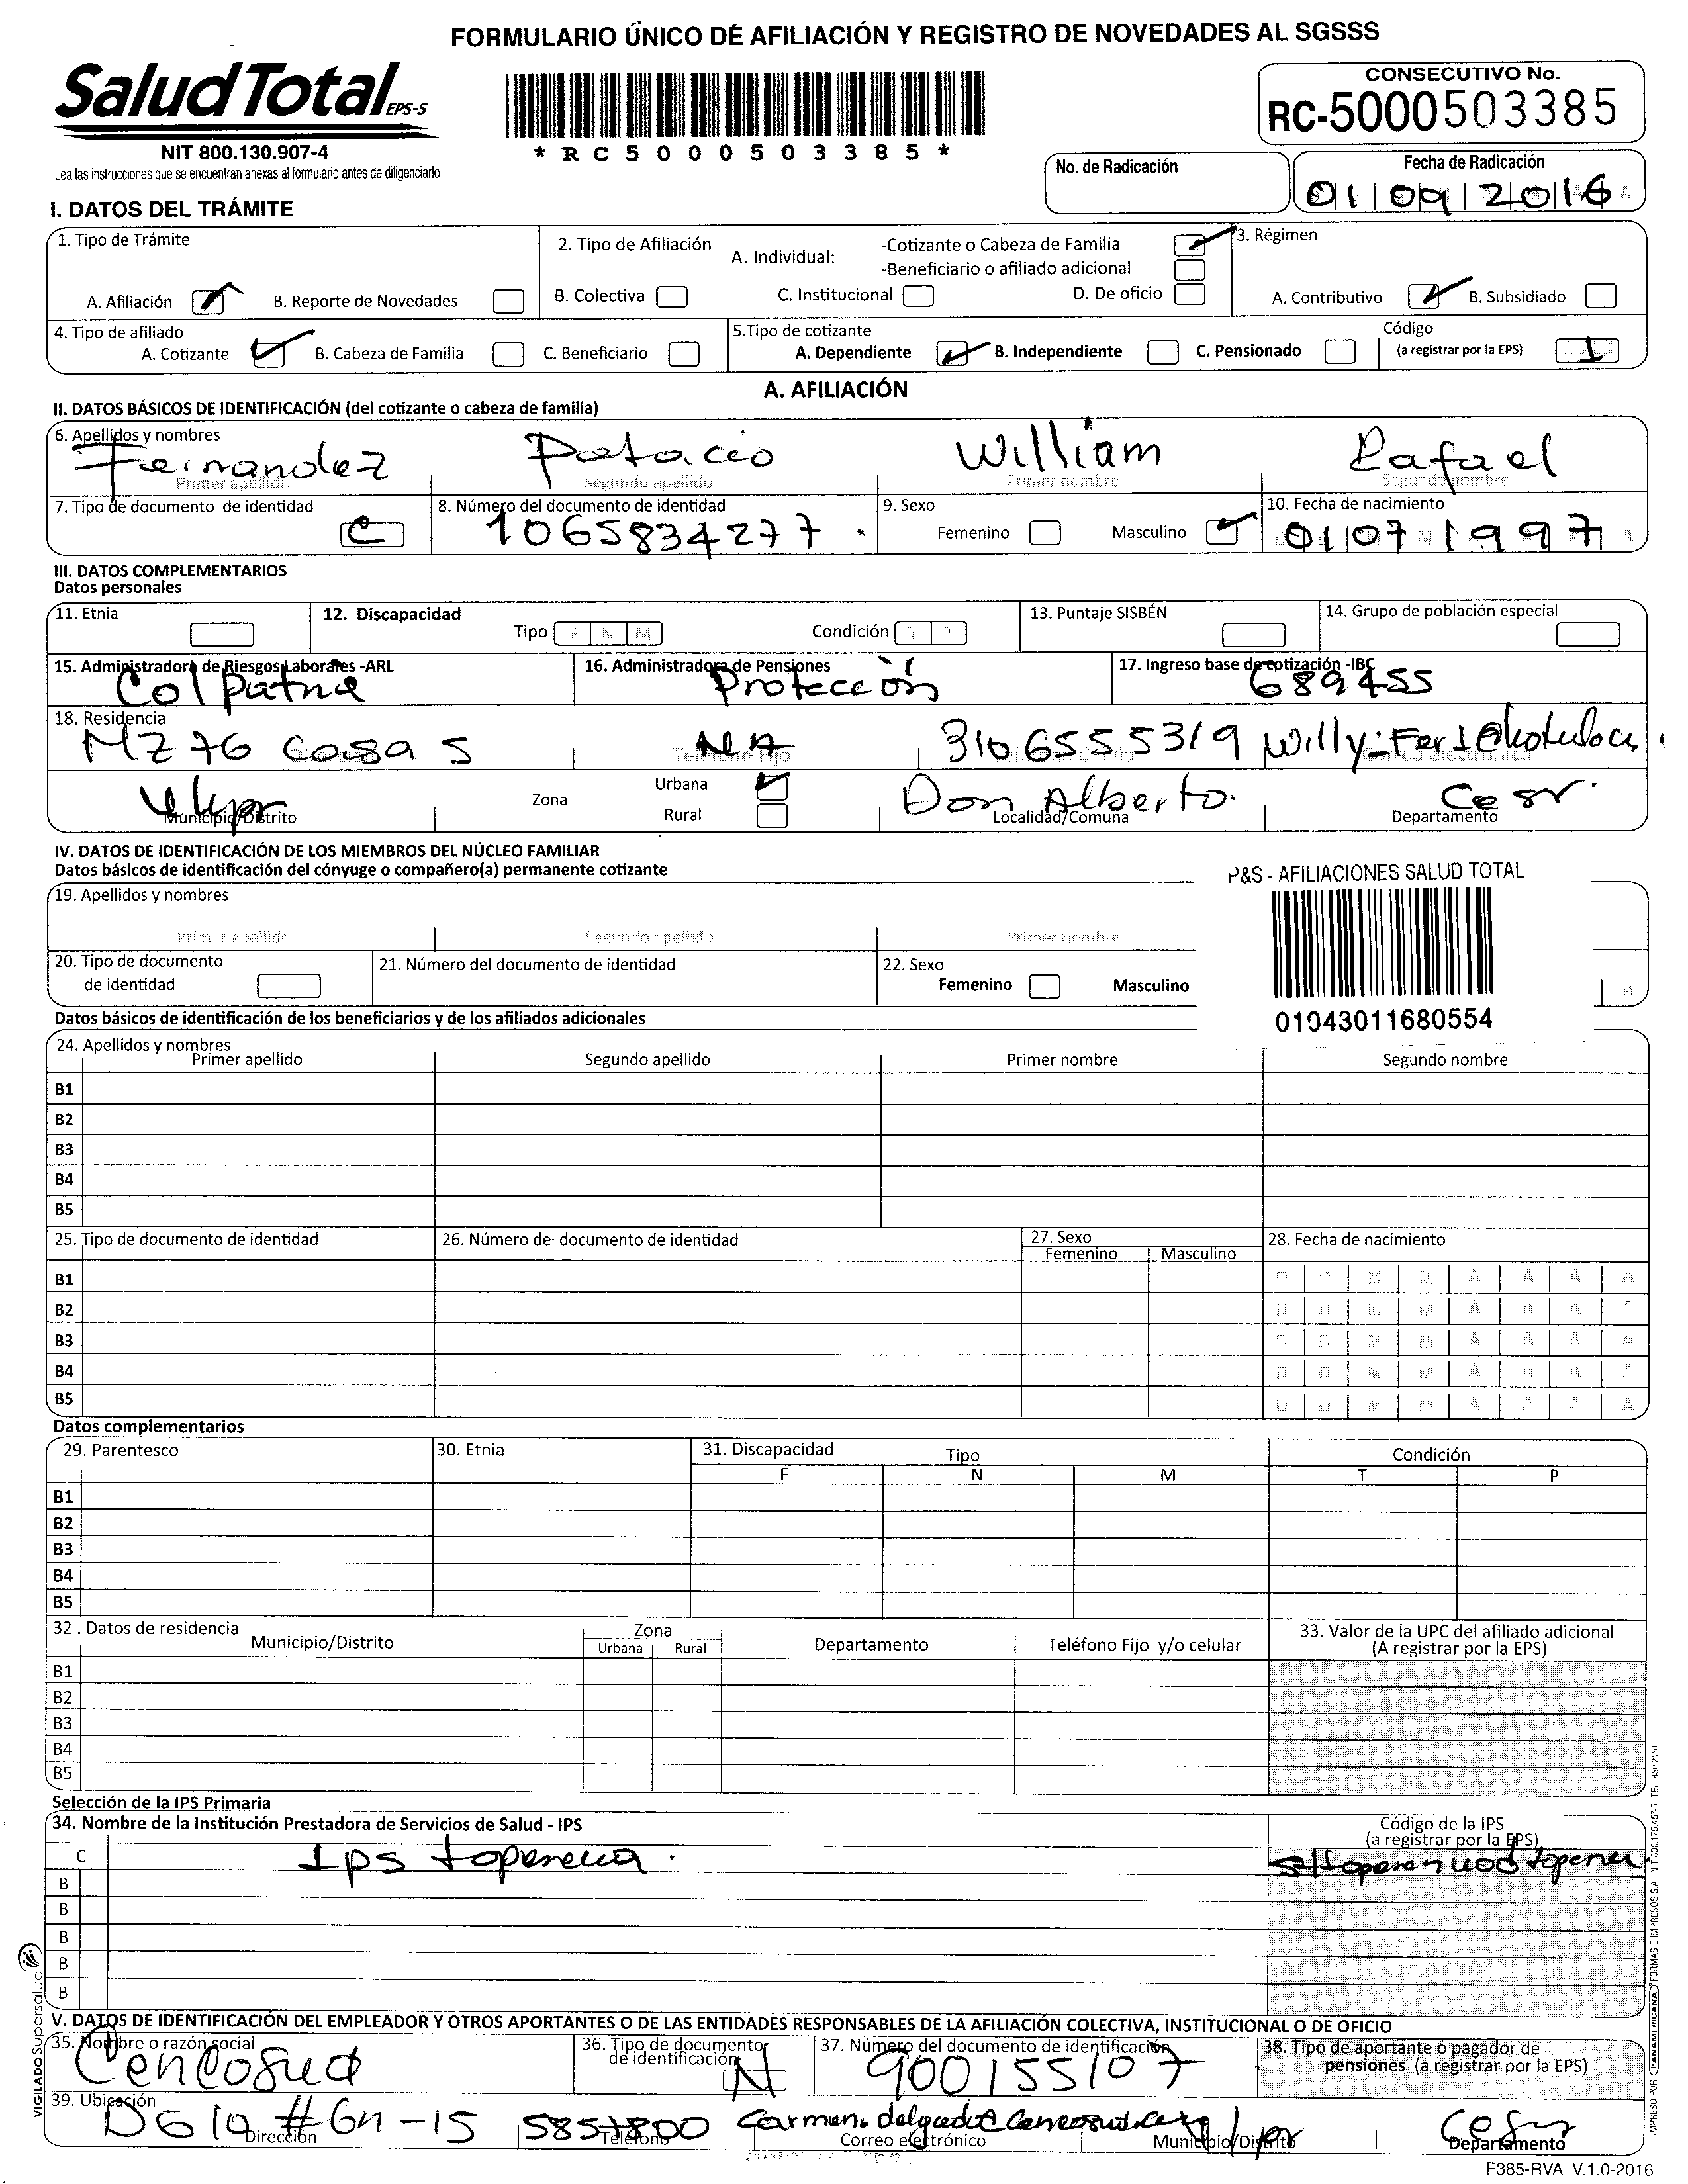 FORMULARIO ÚNICO DE AFILIACIÓN Y REGISTRO DE NOVEDADES AL SGSSS
SaludTotal EPS-S
NIT 800.130.907-4
Lea las instrucciones que se encuentran anexas al formulario antes de diligenciarlo
*RC5000503385*
CONSECUTIVO No.
RC-5000503385
No. de Radicación
Fecha de Radicación
01 09 2016
I. DATOS DEL TRÁMITE
1. Tipo de Trámite
A. Afiliación B. Reporte de Novedades
2. Tipo de Afiliación A. Individual: -Cotizante o Cabeza de Familia
-Beneficiario o afiliado adicional
B. Colectiva C. Institucional D. De oficio
3. Régimen
A. Contributivo B. Subsidiado
4. Tipo de afiliado
A. Cotizante B. Cabeza de Familia C. Beneficiario
5.Tipo de cotizante
A. Dependiente B. Independiente C. Pensionado
Código
(a registrar por la EPS) 1
A. AFILIACIÓN
II. DATOS BÁSICOS DE IDENTIFICACIÓN (del cotizante o cabeza de familia)
6. Apellidos y nombres
Fernandez Palacio William Rafael
Primer apellido Segundo apellido Primer nombre Segundo nombre
7. Tipo de documento de identidad C
8. Número del documento de identidad
1065834277
9. Sexo
Femenino Masculino
10. Fecha de nacimiento
01 07 1997
III. DATOS COMPLEMENTARIOS
Datos personales
11. Etnia
12. Discapacidad Tipo F N M Condición T P
13. Puntaje SISBÉN
14. Grupo de población especial
15. Administradora de Riesgos Laborales -ARL
Colpatria
16. Administradora de Pensiones
Protección
17. Ingreso base de cotización -IBC
689455
18. Residencia
MZ 76 casa 5 NA 3106555319
Dirección Teléfono Fijo Teléfono Celular Correo electrónico
Zona Urbana Rural
Don Alberto. Cesr.
Municipio/Distrito Localidad/Comuna Departamento
IV. DATOS DE IDENTIFICACIÓN DE LOS MIEMBROS DEL NÚCLEO FAMILIAR
Datos básicos de identificación del cónyuge o compañero(a) permanente cotizante
P&S - AFILIACIONES SALUD TOTAL
01043011680554
19. Apellidos y nombres
Primer apellido Segundo apellido Primer nombre
20. Tipo de documento
de identidad
21. Número del documento de identidad
22. Sexo
Femenino Masculino
A
Datos básicos de identificación de los beneficiarios y de los afiliados adicionales
24. Apellidos y nombres
Primer apellido Segundo apellido Primer nombre Segundo nombre
B1
B2
B3
B4
B5
25. Tipo de documento de identidad 26. Número del documento de identidad 27. Sexo 28. Fecha de nacimiento
Femenino Masculino
B1 D D M M A A A A
B2 D D M M A A A A
B3 D D M M A A A A
B4 D D M M A A A A
B5 D D M M A A A A
Datos complementarios
29. Parentesco 30. Etnia 31. Discapacidad Tipo Condición
F N M T P
B1
B2
B3
B4
B5
32 . Datos de residencia
Municipio/Distrito Zona Departamento Teléfono Fijo y/o celular
Urbana Rural
33. Valor de la UPC del afiliado adicional
(A registrar por la EPS)
B1
B2
B3
B4
B5
Selección de la IPS Primaria
34. Nombre de la Institución Prestadora de Servicios de Salud - IPS
Código de la IPS
(a registrar por la EPS)
C Ips
B
B
B
B
B
V. DATOS DE IDENTIFICACIÓN DEL EMPLEADOR Y OTROS APORTANTES O DE LAS ENTIDADES RESPONSABLES DE LA AFILIACIÓN COLECTIVA, INSTITUCIONAL O DE OFICIO
35. Nombre o razón social
Cencosud
36. Tipo de documento
de identificación
N
37. Número del documento de identificación
900155107
38. Tipo de aportante o pagador de
pensiones (a registrar por la EPS)
39. Ubicación
DG 10 #6n-15 5857800
Dirección Teléfono Correo electrónico Municipio/Distrito Departamento
F385-RVA V.1.0-2016
VIGILADO Supersalud
IMPRESO POR PANAMERICANA FORMAS E IMPRESOS S.A. NIT 800.175.457-5 TEL. 430 2110